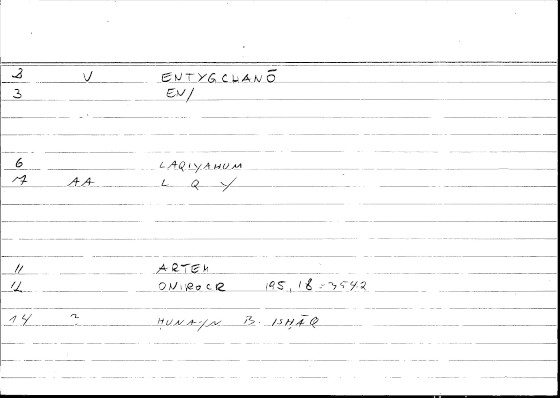 2 V ENTYGCHANŌ
3 EN/
6 LAQIYAHUM
7 AA L Q Y
11 ARTEM
12 ONIROCR 195, 18 = 3542
14 ? ḤUNAYN B. ISḤĀQ